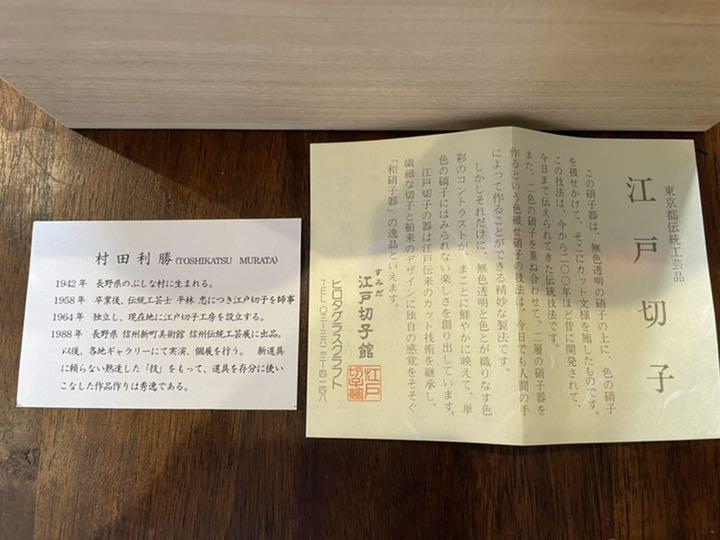 村田利勝(TOSHIKATSU MURATA)
1942年 長野県のぶしな村に生まれる。
1958年 卒業後、伝統工芸士 平林 忠につき江戸切子を師事
1964年 独立し、現在地に江戸切子工房を設立する。
1988年 長野県 信州新町美術館 信州伝統工芸展に出品。
以後、各地ギャラリーにて実演、個展を行う。 新道具
に頼らない熟達した「技」をもって、道具を存分に使い
こなした作品作りは秀逸である。
東京都伝統工芸品
江戸切子
この硝子器は、無色透明の硝子の上に、色の硝子
を被せかけて、そこにカット文様を施したものです。
この技法は、今から二〇〇年ほど昔に開発されて、
今日まで伝えられてきた伝統技法です。
また、二色の硝子を重ね合わせて、二層の硝子器を
作るという色被せ硝子の技法は、今日でも人間の手
によって作ることができる精妙な製法です。
しかしそれだけに、無色透明と色とが織りなす色
彩のコントラストが、まことに鮮やかに映えて、単
色の硝子にはみられない楽しさを創り出しています。
江戸切子の器は江戸伝来のカット技術を継承し、
繊細な切子と舶来のデザインに独自の感覚をそそぐ
「和硝子器」の逸品といえます。
すみだ
江戸切子館
ヒロタグラスクラフト
TEL〇三-三六二三-四一四八
江戸
切子館